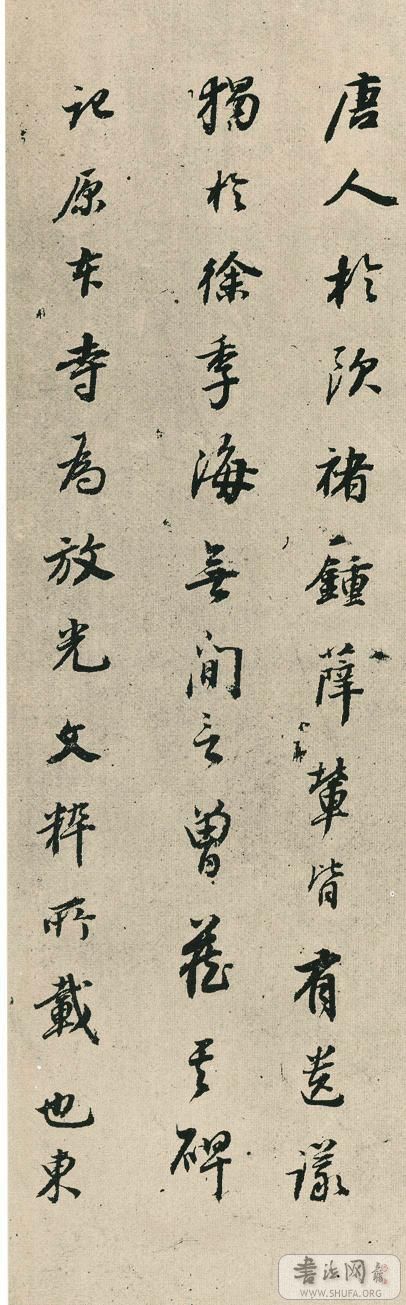 唐人於欧褚鍾薛輩皆有遗議
獨於徐季海無间言曾藏其碑
記原本寺為放光文粹所載也東
書法网
WWW.SHUFA.ORG